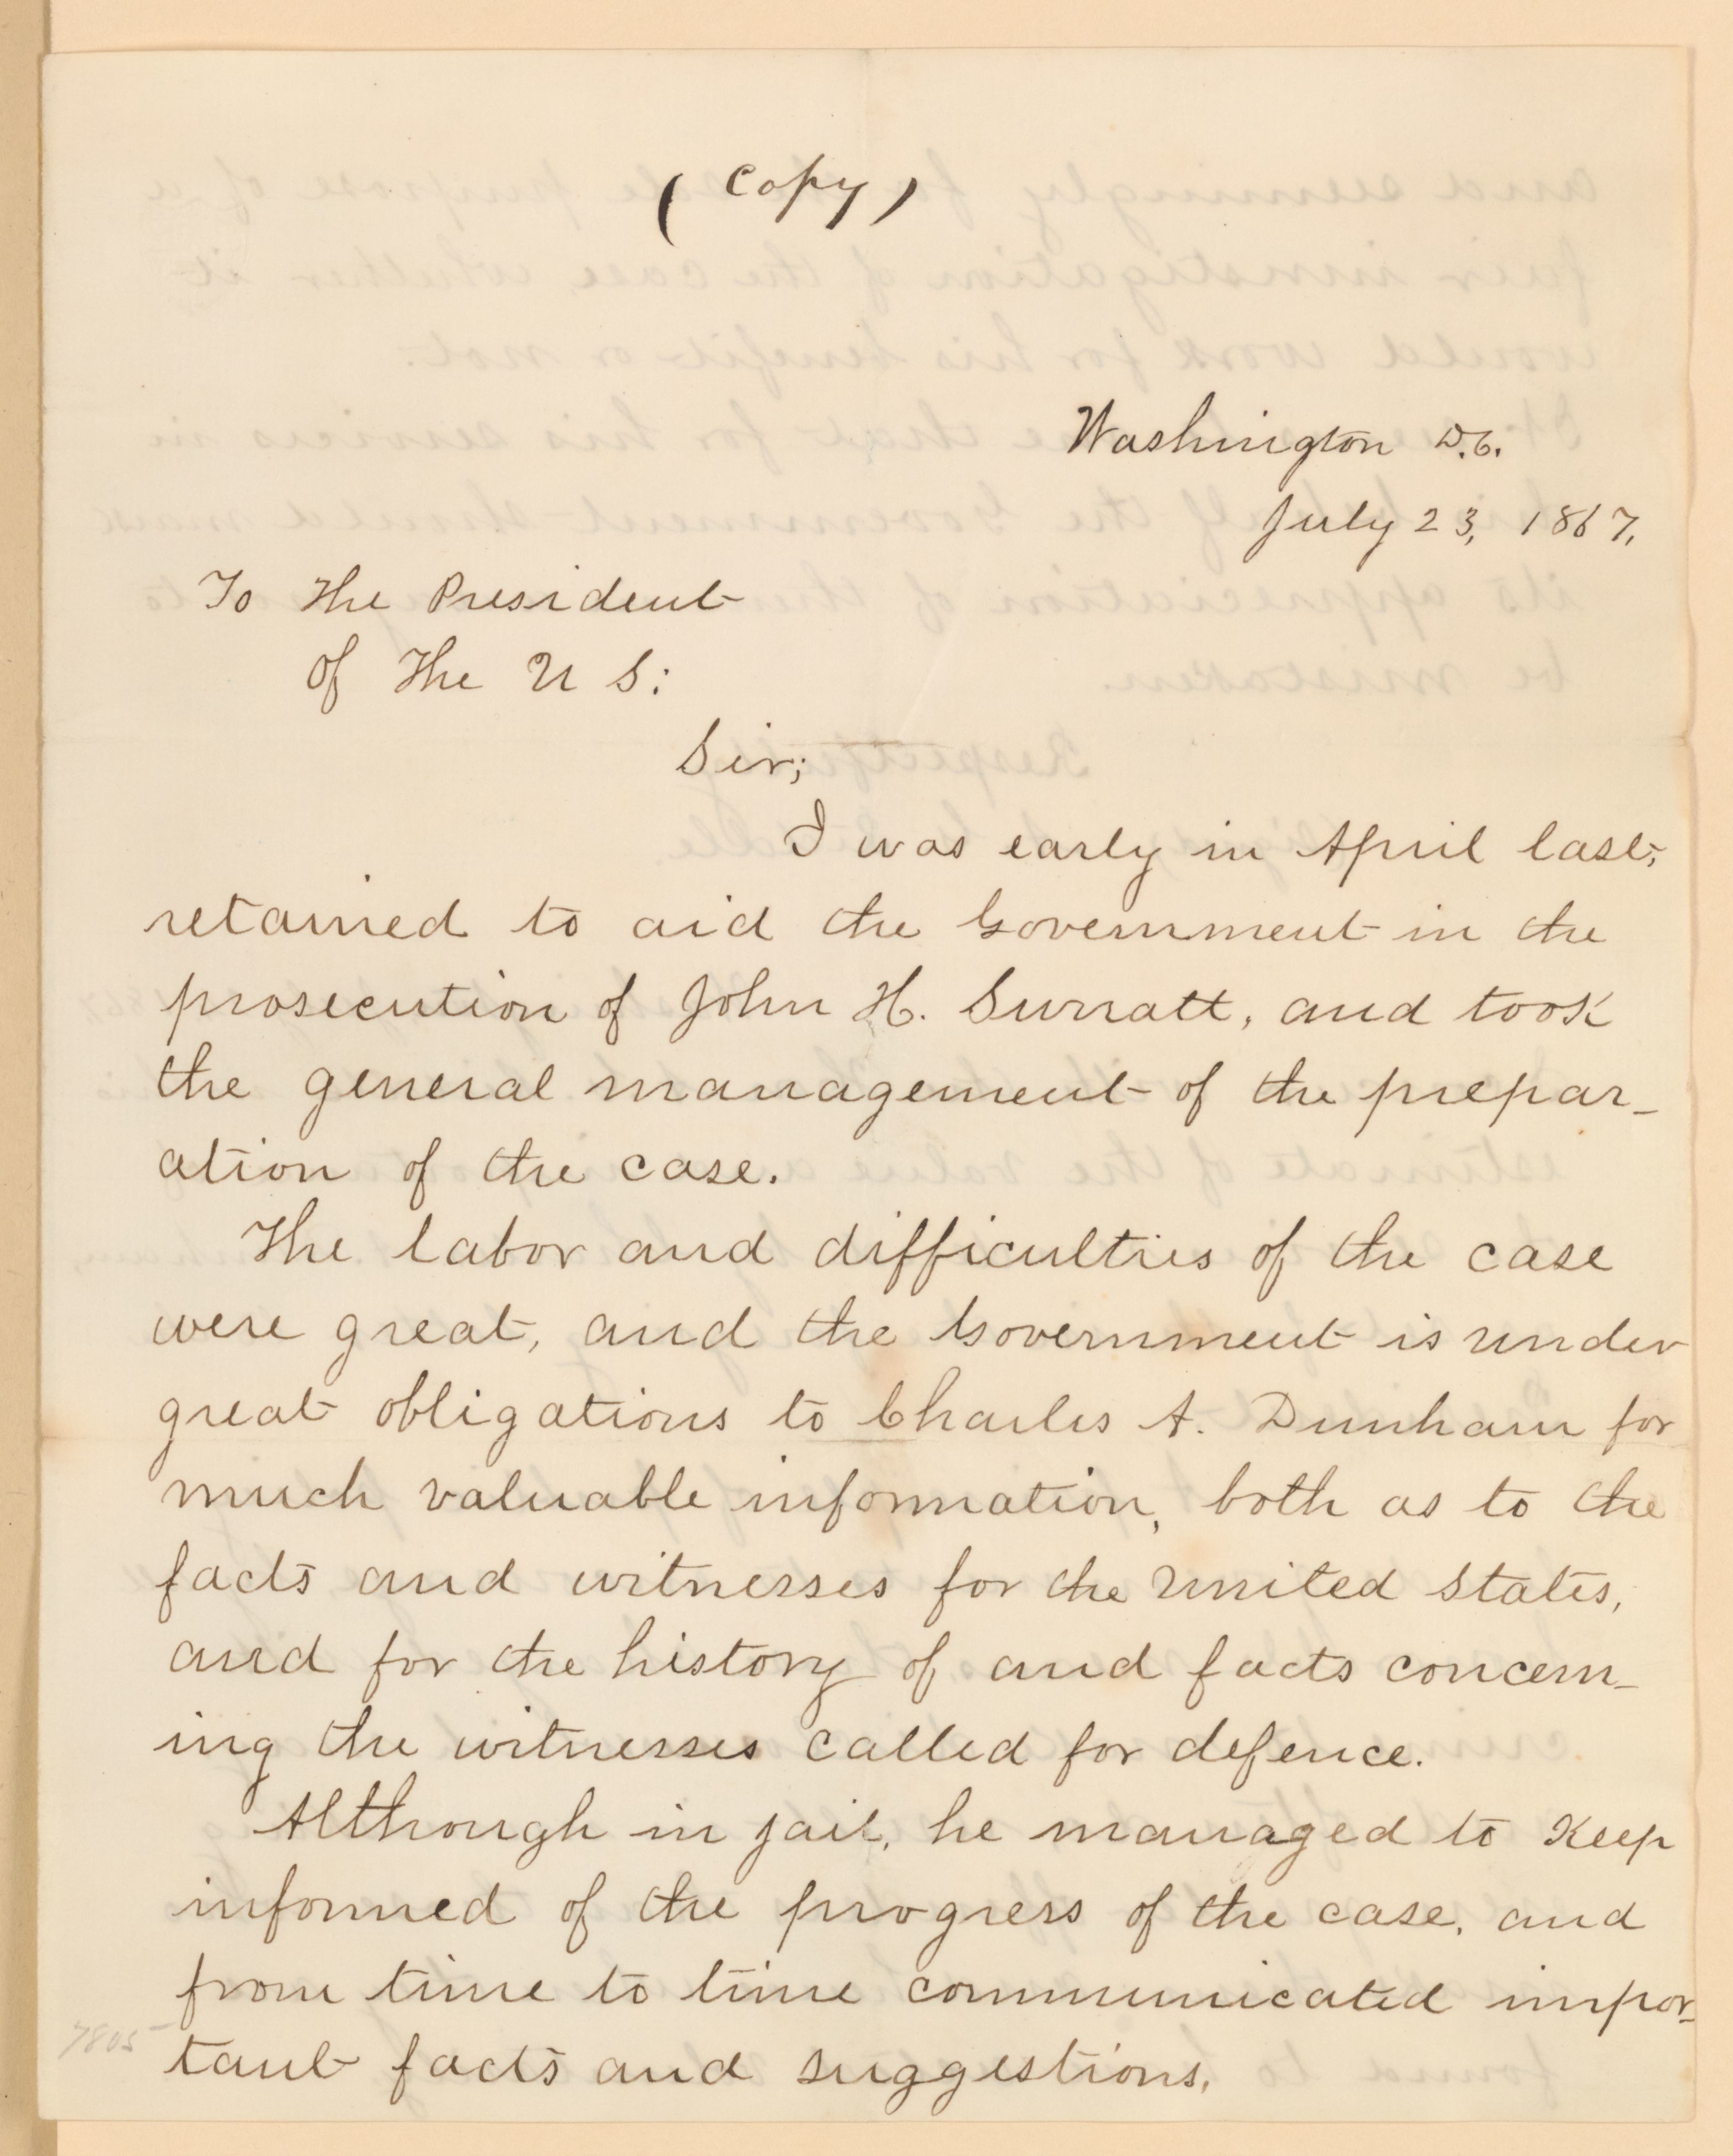 ( Copy )
Washington D.C.
July 23, 1867,
To The President
of The U S:
Sir;
I was early in April last,
retained to aid the Government in the
prosecution of John H. Surratt, and took
the general management of the prepar-
ation of the case.
The labor and difficulties of the case
were great, and the Government is under
great obligations to Charles A. Dunham for
much valuable information, both as to the
facts and witnesses for the United States,
and for the history of and facts concern-
ing the witnesses called for defence.
Although in jail, he managed to Keep
informed of the progress of the case, and
from time to time communicated impor-
7805 tant facts and suggestions.